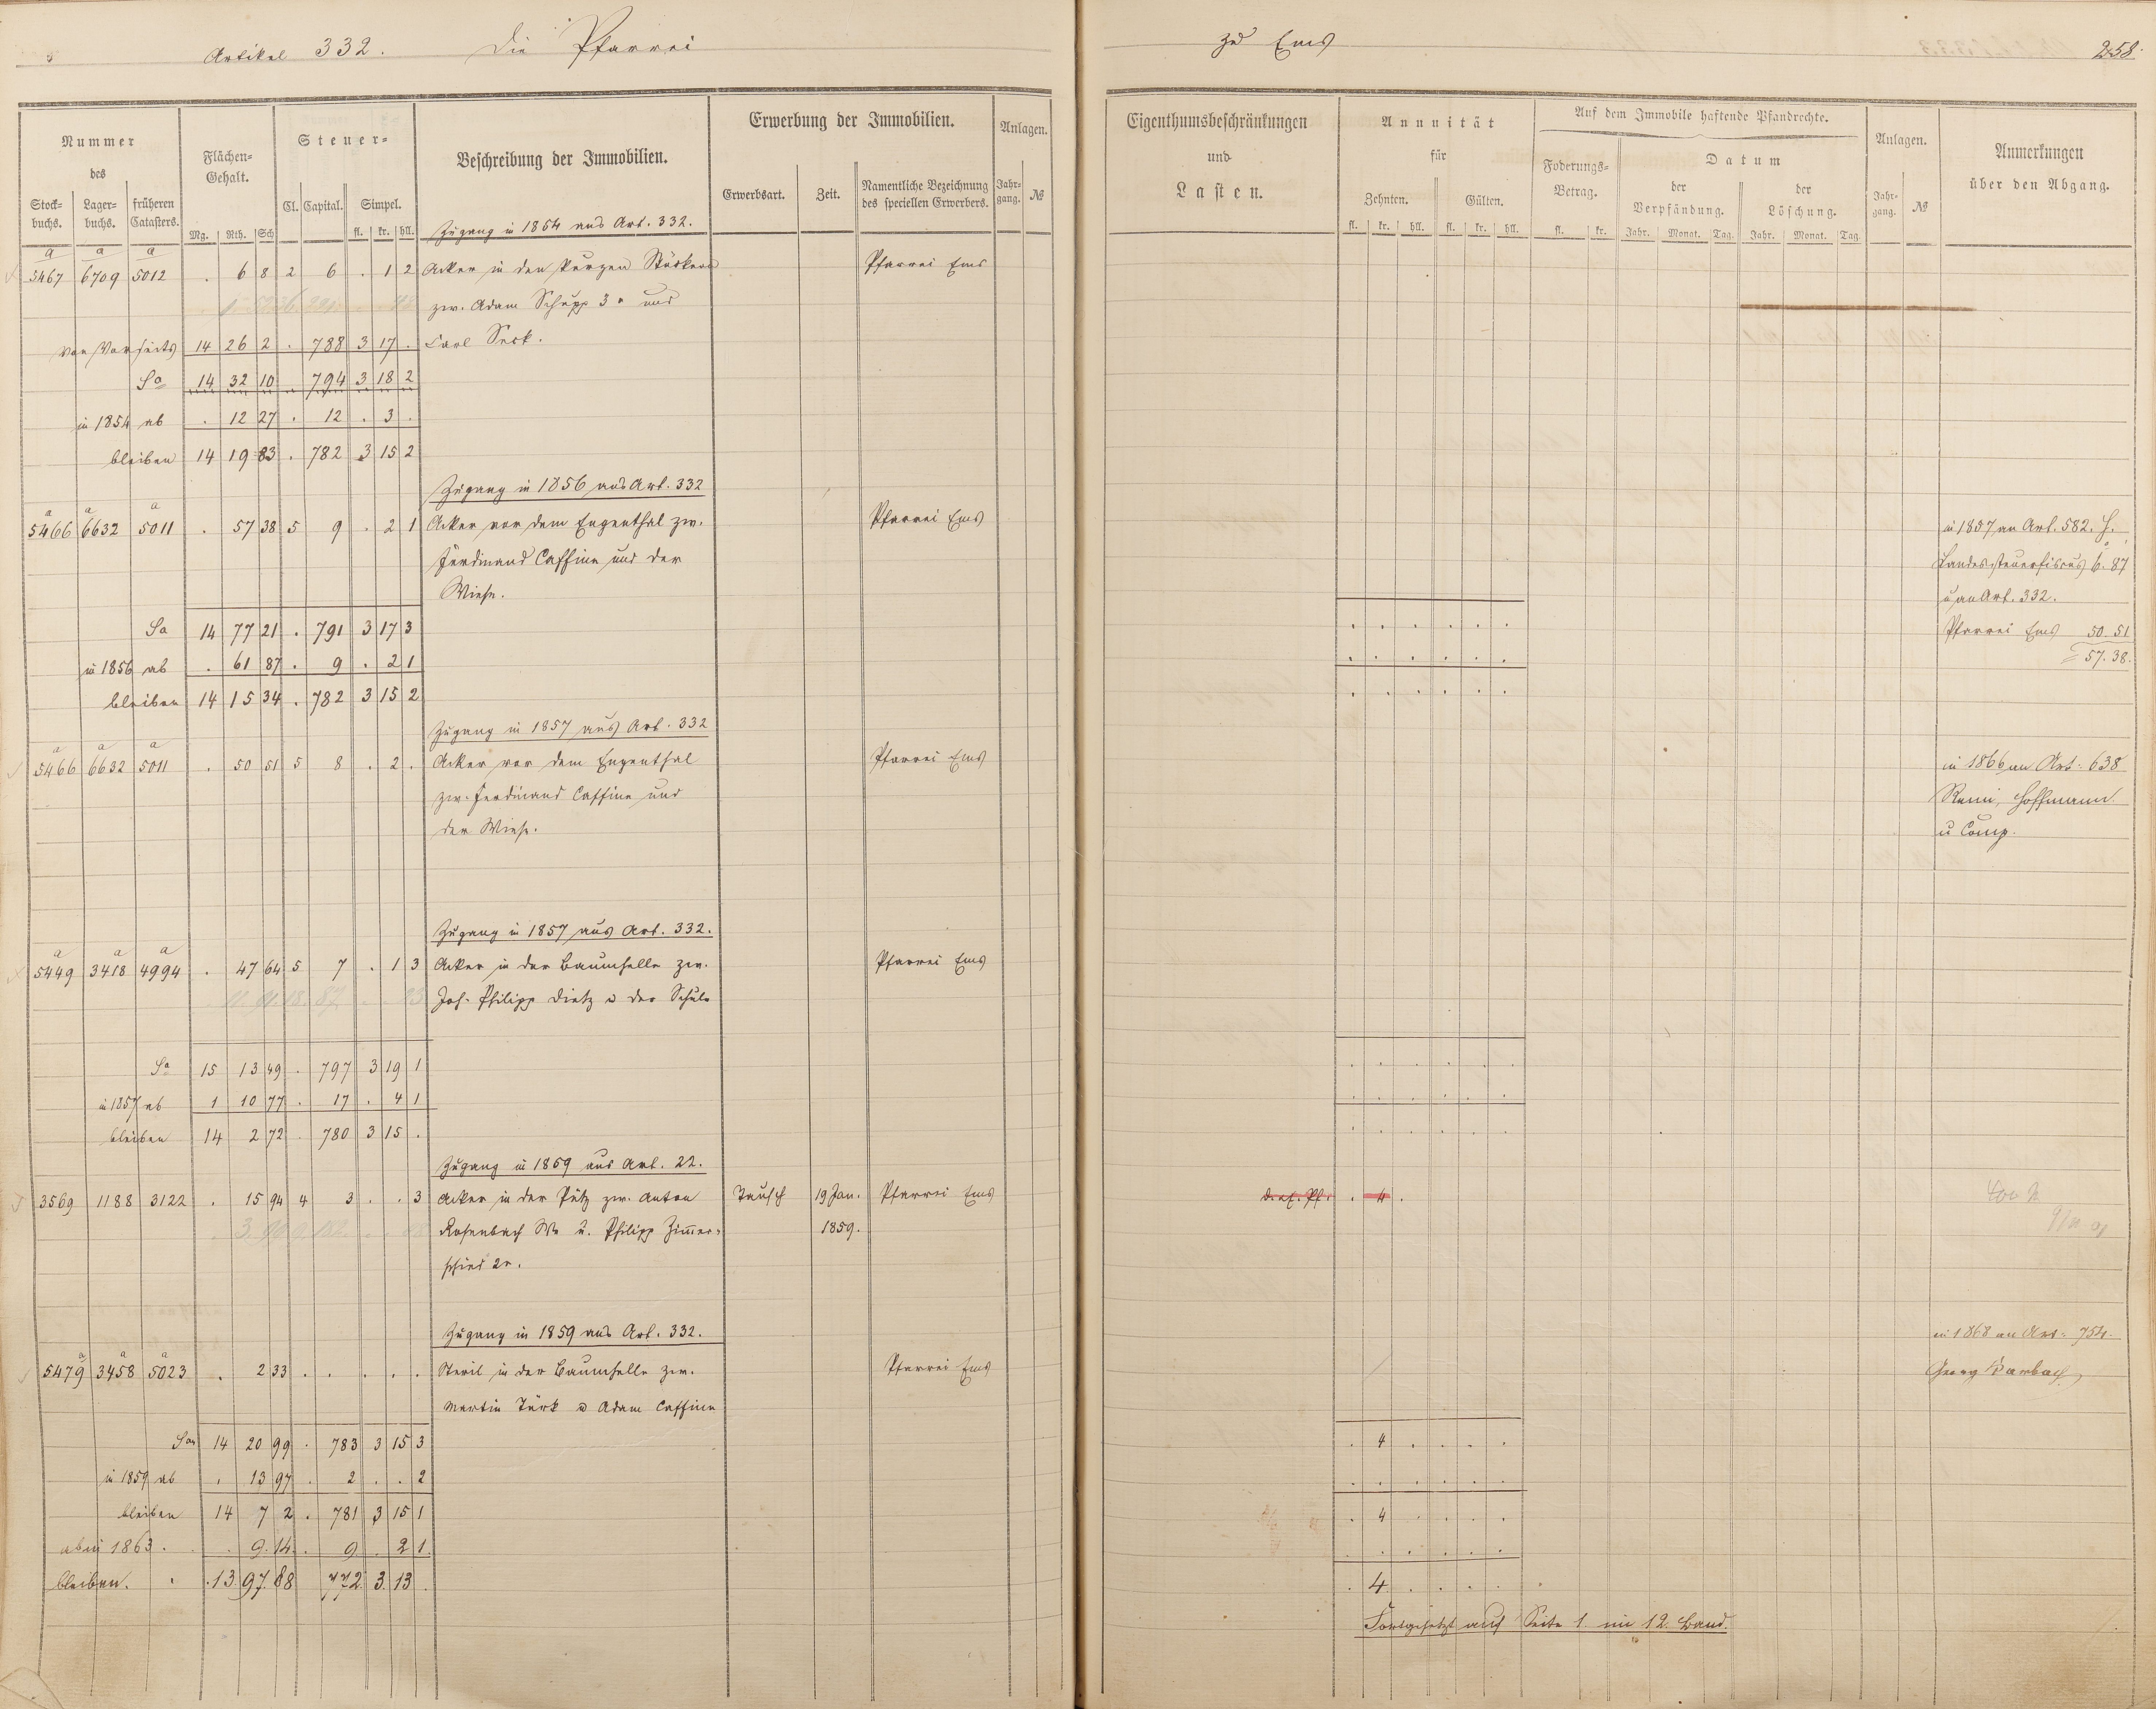 Artikel 332. Die Pfarrei zu Ems 258.
Nummer des
Stockbuchs. Lagerbuchs. früheren Catasters.
Flächen-Gehalt.
Mg. Rth. Sch
Steuer-
Cl. Capital. Simpel.
fl. kr. hll.
Beschreibung der Immobilien.
Erwerbung der Immobilien.
Erwerbsart. Zeit. Namentliche Bezeichnung des speciellen Erwerbers.
Anlagen.
Jahrgang. №
Eigenthumsbeschränkungen und Lasten.
Annuität für
Zehnten. Gülten.
fl. kr. hll. fl. kr. hll.
Auf dem Immobile haftende Pfandrechte.
Foderungs-Betrag.
fl. kr.
Datum
der Verpfändung. der Löschung.
Jahr. Monat. Tag. Jahr. Monat. Tag.
Anlagen.
Jahrgang. №
Anmerkungen über den Abgang.
Zugang in 1854 aus Art. 332.
a a a
5467 6709 5012 . 6 8 2 6 . 1 2 Acker in den kurzen Stücken Pfarrei Ems
zw. Adam Schupp 3r und
von Vorseits 14 26 2 . 788 3 17 . Carl Seck.
Sa 14 32 10 . 794 3 18 2
in 1854 ab . 12 27 . 12 . 3 .
bleiben 14 19 83 . 782 3 15 2
Zugang in 1856 aus Art. 332
a a a
5466 6632 5011 . 57 38 5 9 . 2 1 Acker vor dem Engenthal zw. Pfarrei Ems in 1857 an Art. 582. H.
Ferdinand Caffine und der Landessteuerfiscus 6. 87
Wiese. u an Art. 332.
Sa 14 77 21 . 791 3 17 3 . . . . . . Pfarrei Ems 50. 51
in 1856 ab . 61 87 . 9 . 2 1 . . . . . . = 57. 38.
bleiben 14 15 34 . 782 3 15 2 . . . . . .
Zugang in 1857 aus Art. 332
a a a
5466 6632 5011 . 50 51 5 8 . 2 . Acker vor dem Engenthal Pfarrei Ems in 1866 an Art: 638
zw. Ferdinand Caffine und Remi, Hoffmann
der Wiese. u Comp.
Zugang in 1857 aus Art. 332.
a a a
5449 3418 4994 . 47 64 5 7 . 1 3 Acker in der Baumhelle zw. Pfarrei Ems
Joh. Philipp Dietz u der Schule
Sa 15 13 49 . 797 3 19 1 . . . . . .
in 1857 ab 1 10 77 . 17 . 4 1 . . . . . .
bleiben 14 2 72 . 780 3 15 . . . . . . .
Zugang in 1859 aus Art. 22.
3569 1188 3122 . 15 94 4 3 . . 3 Acker in der Pütz zw. Anton Tausch 19 Jan. Pfarrei Ems d. ef. Pf. . 4 .
Rosenbach We u. Philipp Zimmer- 1859.
schied 2r.
Zugang in 1859 aus Art. 332. in 1868 an Art: 754.
a a a
5479 3458 5023 . 2 33 . . . . . Steril in der Baumhelle zw. Pfarrei Ems Georg
Martin Türk u Adam Caffine
Sa 14 20 99 . 783 3 15 3 . 4 . . . .
in 1859 ab . 13 97 . 2 . . 2 . . . . . .
bleiben 14 7 2 . 781 3 15 1 . 4 . . . .
ab in 1863 . . 9. 14. . 9 . 2 1 . . . . . .
bleiben. . 13. 97. 88 772. 3. 13 . . 4. . . . .
Fortgesetzt auf Seite 1. im 12. Band.